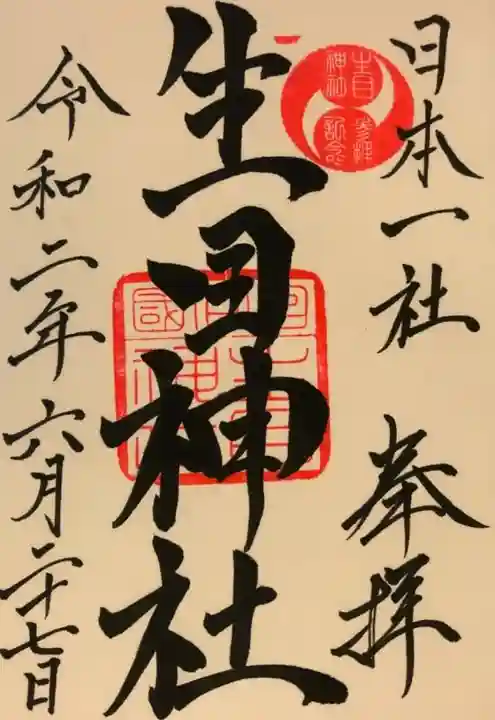 日本一社
奉拝
生目
神社
参拝
記念
生目神社
令和二年六月二十七日